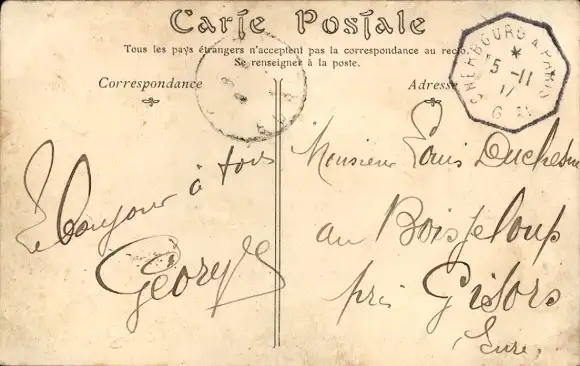 Carte Postale
Tous les pays étrangers n'acceptent pas la correspondance au recto.
Se renseigner à la poste.
Correspondance
Adresse
CHERBOURG À PARIS
5-11
Bonjour à tous
Georges
Monsieur Louis Duchesne
au Boisgeloup
près Gisors
Eure.